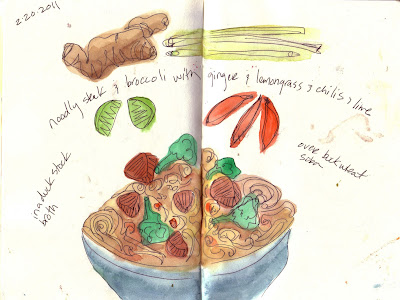 2.20.2011
noodly steak & broccoli with ginger & lemongrass & chilis & lime
in a duck stock
broth
over buckwheat
soba